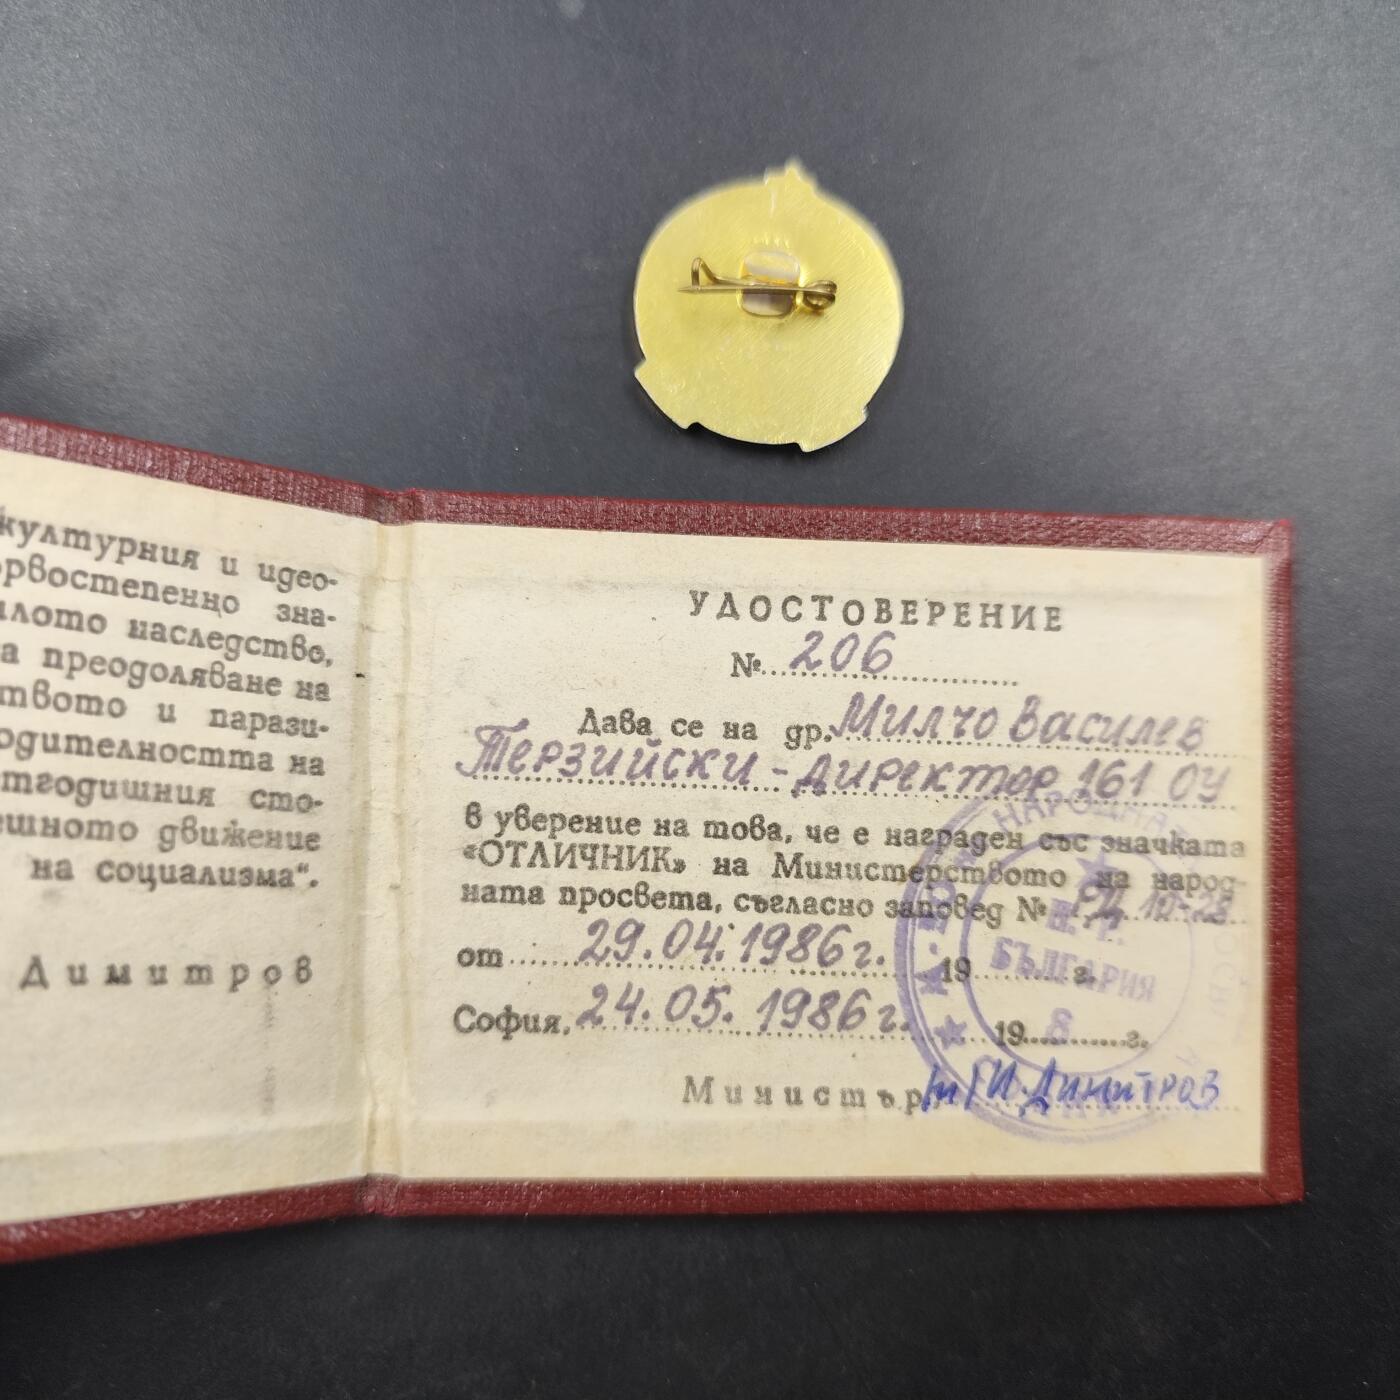 културния и идео-
първостепенно зна-
миналото наследство,
за преодоляване на
и парази-
на
сто-
движение
на социализма“.
Димитров
УДОСТОВЕРЕНИЕ
№ 206
Дава се на др. Милчо Василев
Терзийски - директор 161 ОУ
в уверение на това, че е награден със значката
«ОТЛИЧНИК» на Министерството на народ-
ната просвета, съгласно заповед № РД 10-28
от 29.04.1986 г. 19 г.
София, 24.05.1986 г. 19 г.
Министър: Димитров
НАРОДНАТА
БЪЛГАРИЯ
8